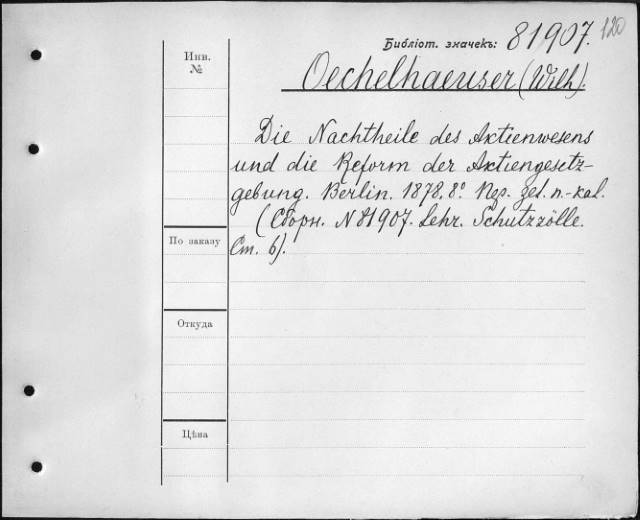 120
Библіот. значекъ: 81907.
Инв.
№
Oechelhaeuser (Wilh).
Die Nachtheile des Aktienwesens
und die Reform der Aktiengesetz-
gebung. Berlin. 1878. 8° Пер. zel. п.-kal.
(Сборн. N 81907. Lehr. Schutzzölle.
Ст. 6).
По заказу
Откуда
Цѣна